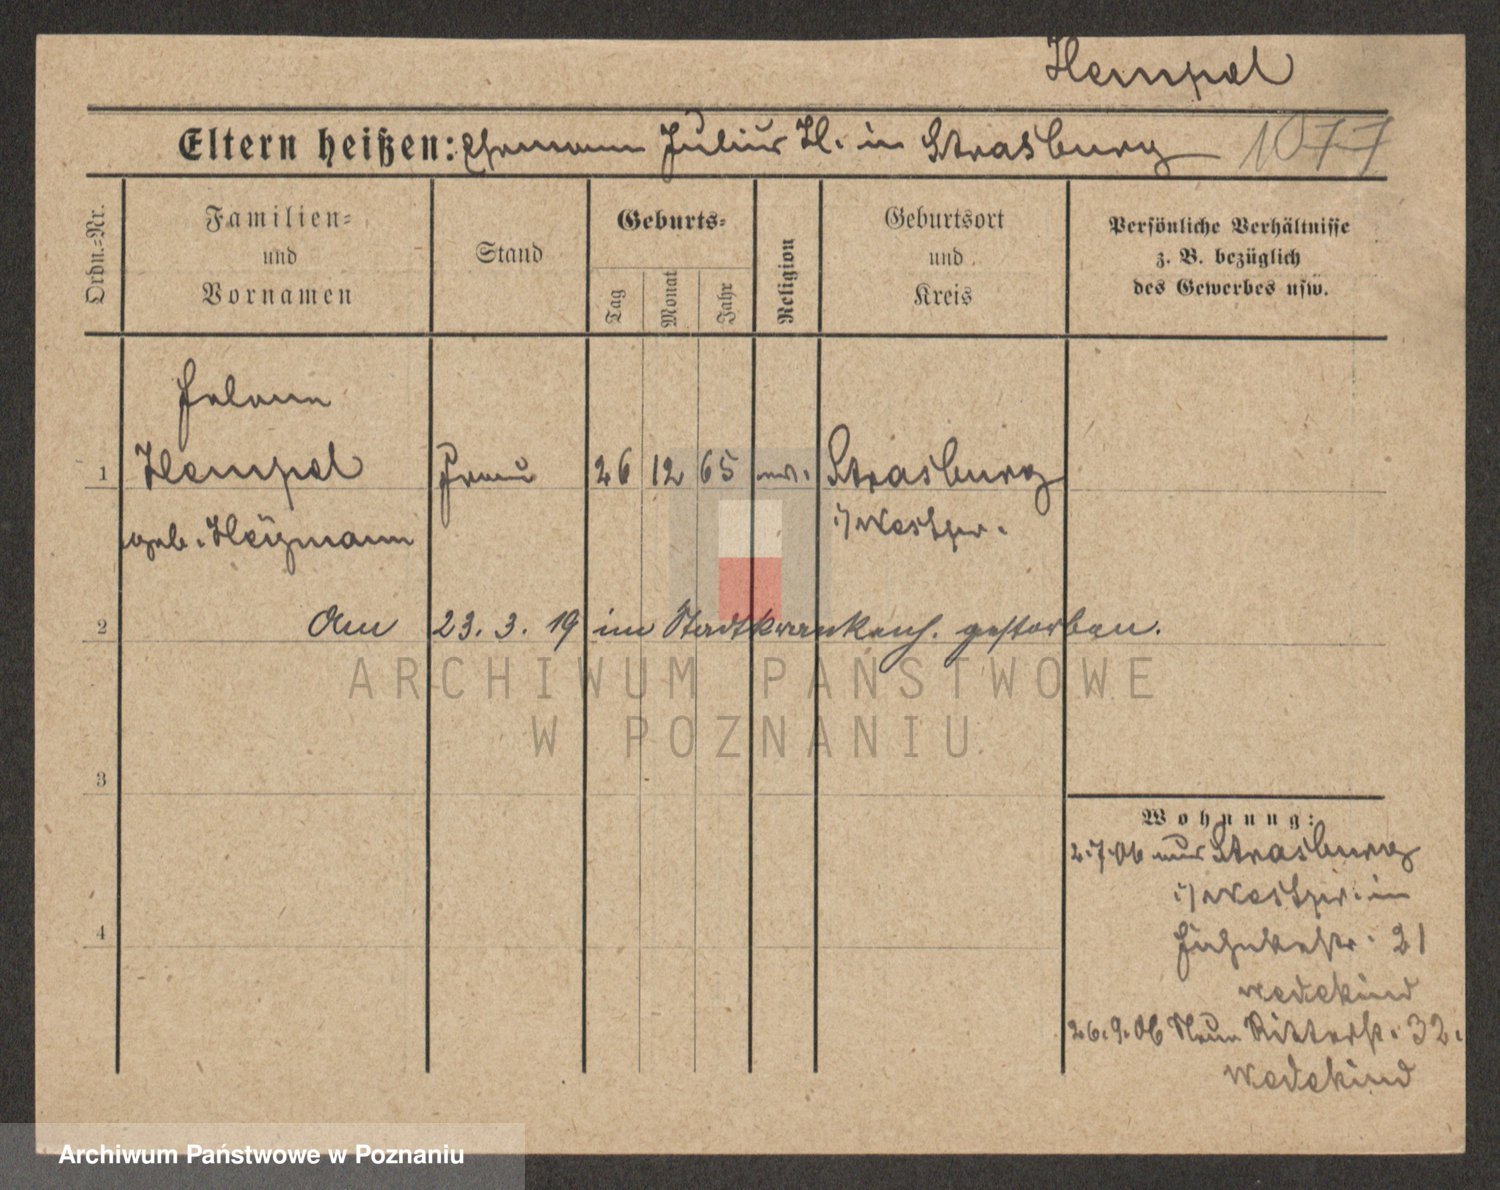 Hempel
Eltern heißen: Ehemann Julius H. in Strasburg 1077
Ordn.=Nr.
Familien=
und
Vornamen
Stand
Geburts=
Tag
Monat
Jahr
Religion
Geburtsort
und
Kreis
Persönliche Verhältnisse
z. B. bezüglich
des Gewerbes usw.
Helene
1 Hempel Frau 26 12 65 ev. Strasburg
geb. Heymann
i/Westpr.
2 Am 23. 3. 19 im Stadtkrankenh. gestorben.
ARCHIWUM PAŃSTWOWE
W POZNANIU
3
Wohnung:
2.7.06 aus Strasburg
i/Westpr. in
4
21
Wedekind
26.9.06 Neue Ritterstr. 32.
Wedekind
Archiwum Państwowe w Poznaniu